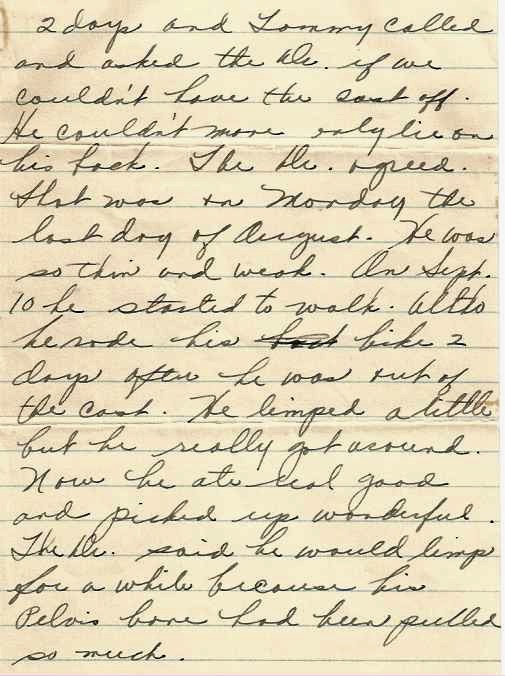 2 days and Tommy called
and asked the Dr. if we
couldn't have the cast off.
He couldn't move only lie on
his back. The Dr. agreed.
that was on Monday the
last day of August. He was
so thin and weak. On Sept.
10 he started to walk. Altho
he rode his bike 2
days after he was out of
the cast. He limped a little
but he really got around.
Now he ate real good
and picked up wonderful.
The Dr. said he would limp
for a while because his
Pelvis bone had been pulled
so much.